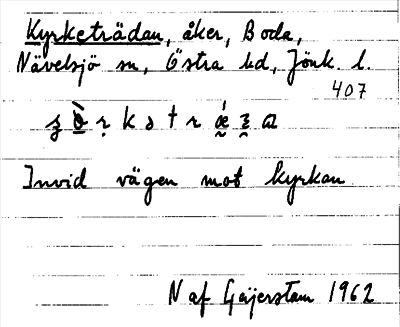 Kyrketrädan, åker, Boda,
Nävelsjö sn, Östra hd, Jönk. l.
407
Invid vägen mot kyrkan
N af Geijerstam 1962